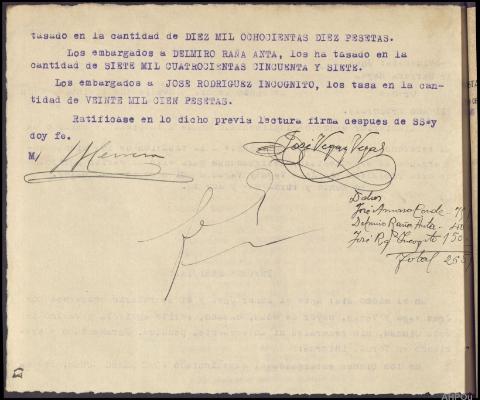 tasado en la cantidad de DIEZ MIL OCHOCIENTAS DIEZ PESETAS.
Los embargados a DELMIRO RAÑA ANTA, los ha tasado en la
cantidad de SIETE MIL CUATROCIENTAS CINCUENTA Y SIETE.
Los embargados a JOSE RODRIGUEZ INCOGNITO, los tasa en la can-
tidad de VEINTE MIL CIEN PESETAS.
Ratificase en lo dicho previa lectura firma despues de SSª y
doy fe.
M/
José Vegas Vegas
José Amaro Conde
Delmiro Raña Anta
José Rgz Incognito 150
Total
AHPOu